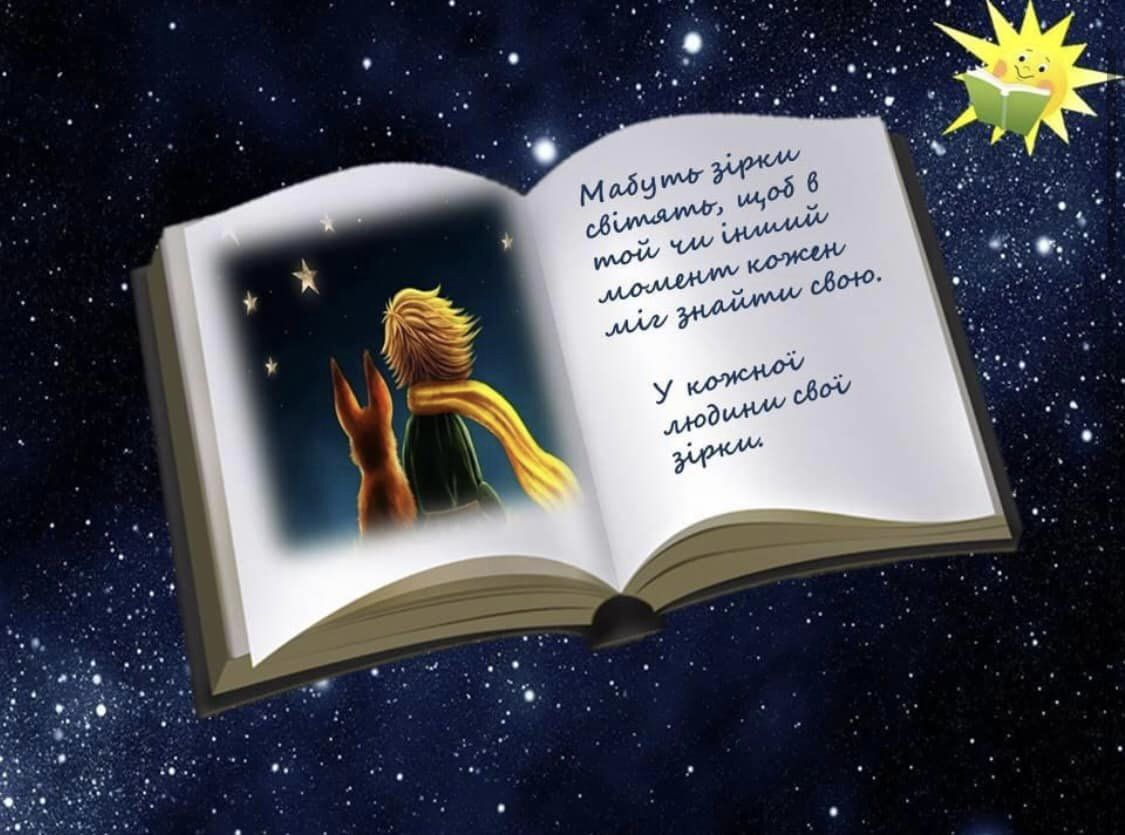 Мабуть зірки
світять, щоб в
той чи інший
момент кожен
міг знайти свою.
У кожної
людини свої
зірки.